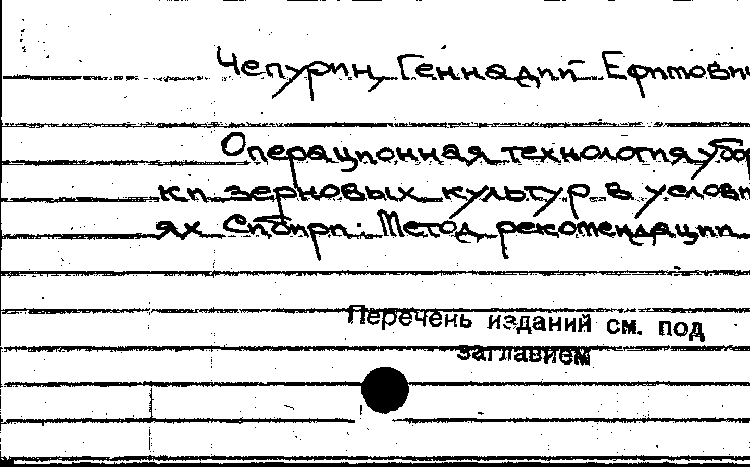 Чепурин, Геннадий Ефимович
Операционная технология убор
ки зерновых культур в услови
ях Сибири: Метод. рекомендации
Перечень изданий см. под
заглавием